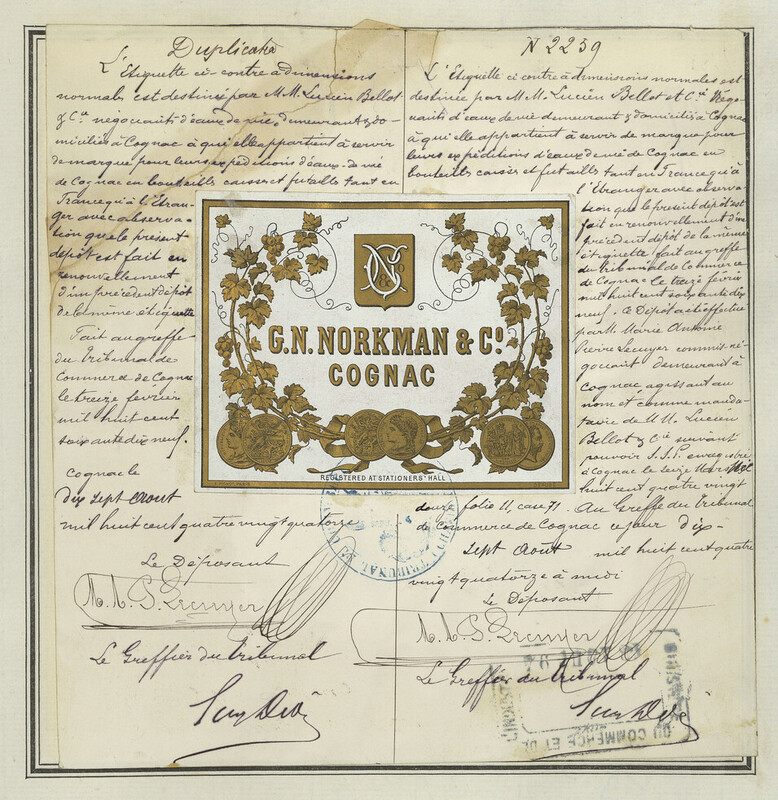 Duplicata
L'Etiquette ci-contre à dimensions
normales est destinée par M.M. Lucien Bellot
& Cie négociants d'eaux de vie, demeurant & do-
miciliés à Cognac à qui elle appartient à servir
de marque pour leurs expéditions d'eaux-de-vie
de Cognac en bouteilles caisses et futailles tant en
France qu'à l'Etran-
ger avec observa-
tion que le présent
dépôt est fait en
renouvellement
d'un précédent dépôt
de la même étiquette
Fait au greffe
du Tribunal de
Commerce de Cognac
le treize février
mil huit cent
soixante dix neuf.
Cognac le
dix sept Août
mil huit cent quatre vingt quatorze
Le Déposant
M. A. P. Lecuyer
Le Greffier du tribunal
N 2239
L'Etiquette ci contre à dimensions normales est
destinée par M.M. Lucien Bellot et Cie Négo-
ciants d'eaux de vie demeurant & domiciliés à Cognac
à qui elle appartient à servir de marque pour
leurs expéditions d'eaux de vie de Cognac en
bouteilles caisses et futailles tant en France qu'à
l'Etranger avec observa-
tion que le présent dépôt est
fait en renouvellement d'un
précédent dépôt de la même
étiquette fait au greffe
du tribunal de Commerce
de Cognac le treize février
mil huit cent soixante dix
neuf. Ce Dépôt a été effectué
par M. Marie Antoine
Pierre Lecuyer commis-né-
gociant demeurant à
Cognac, agissant au
nom et comme manda-
taire de M.M. Lucien
Bellot & Cie suivant
pouvoir S.S.P. enregistré
à Cognac le seize Mars mil
huit cent quatre vingt
douze folio 11, case 71. Au Greffe du Tribunal
de Commerce de Cognac ce jour dix-
sept Août mil huit cent quatre
vingt quatorze à midi
Le Déposant
M. A. P. Lecuyer
Le Greffier du tribunal
G.N. NORKMAN & Co.
COGNAC
REGISTERED AT STATIONERS' HALL
TRIBUNAL
DU COMMERCE ET DE
L'INDUST